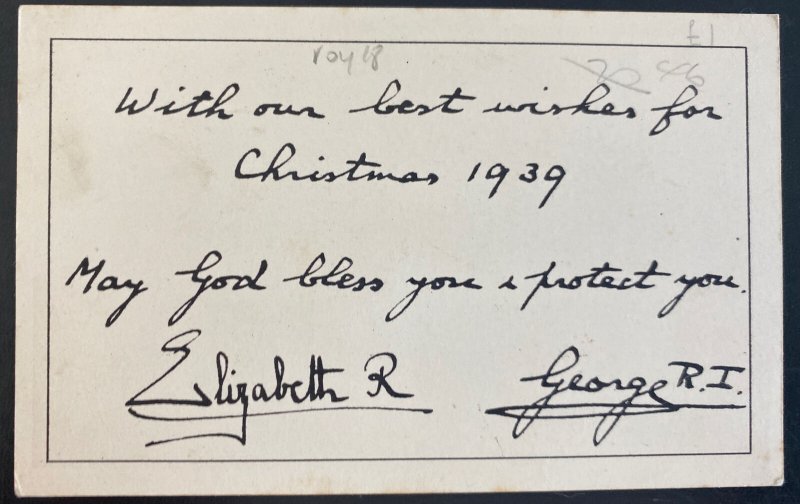 £1
roy 18
20 46
With our best wishes for
Christmas 1939
May God bless you & protect you.
Elizabeth R George R.I.